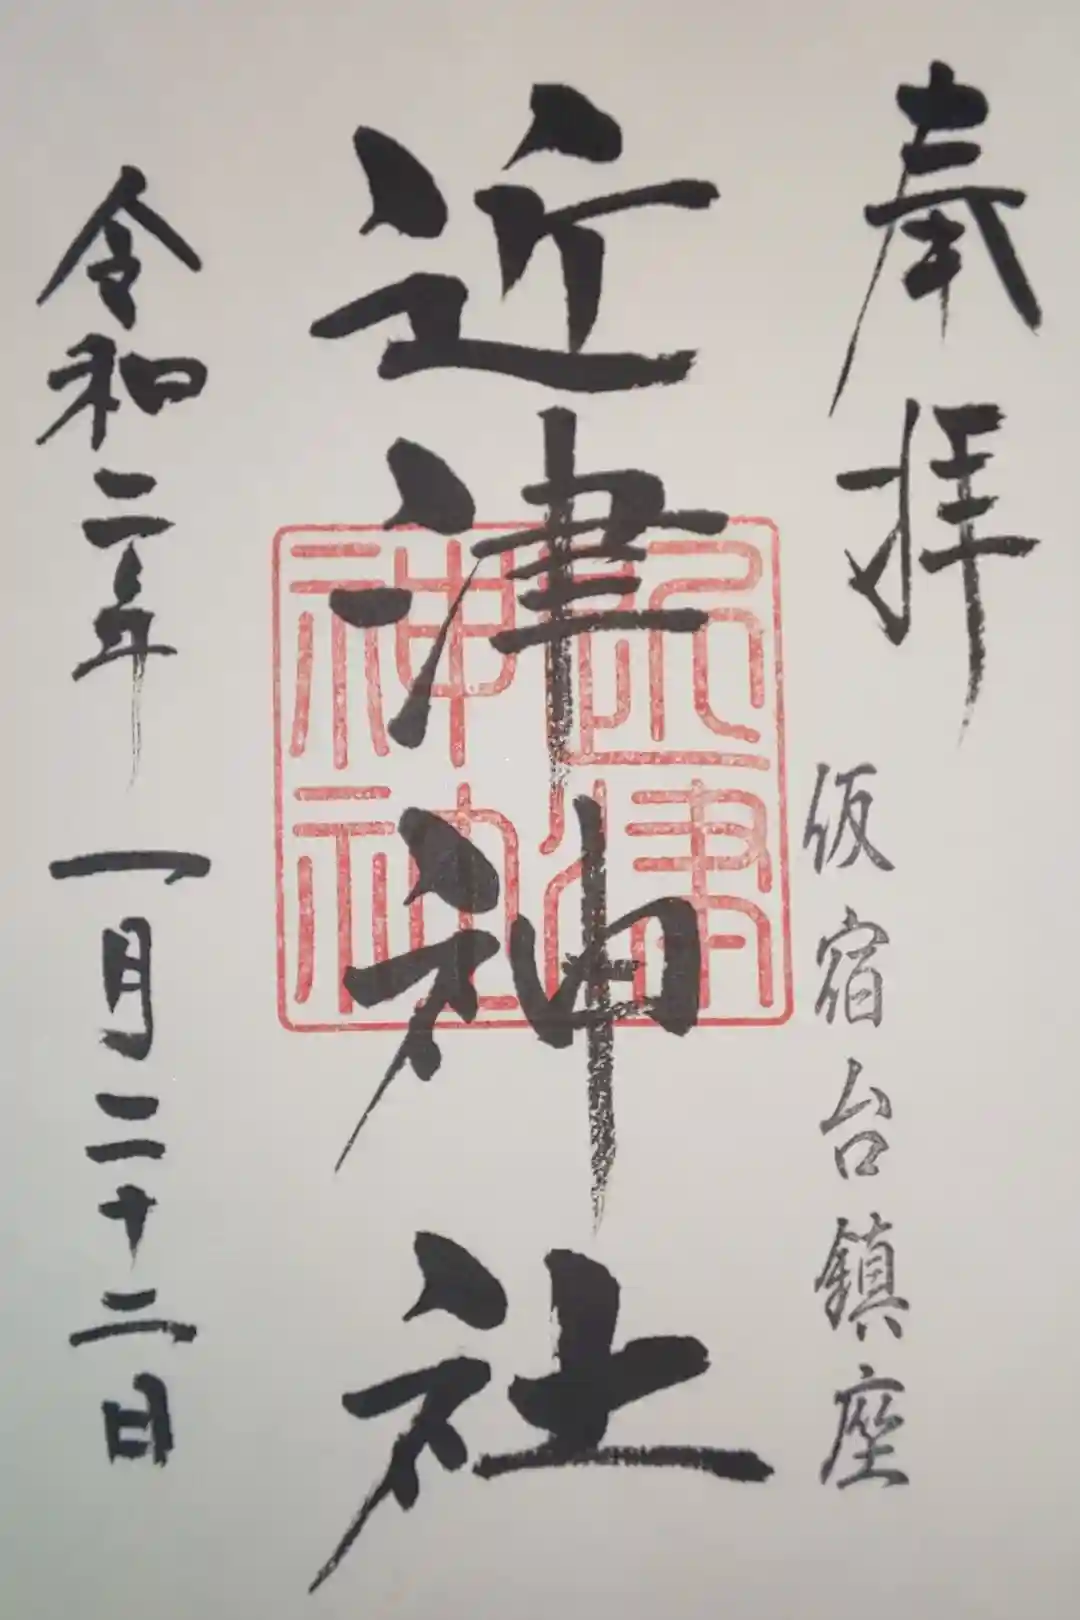 奉拝
仮宿台鎮座
近津神社
近津
神社
令和二年一月二十二日